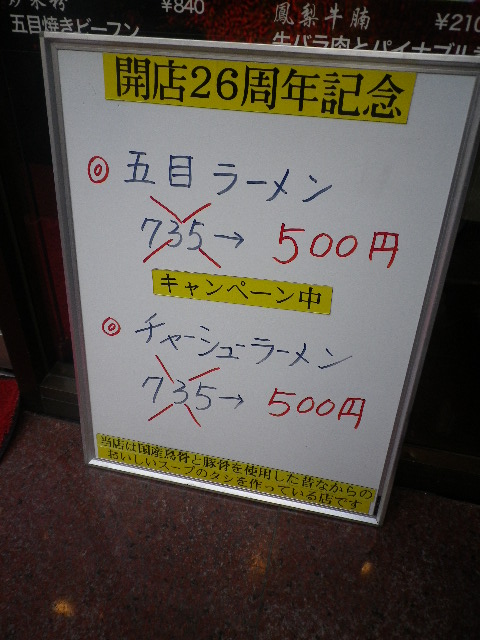 ¥840
五目焼きビーフン
鳳梨牛腩
牛バラ肉とパイナップル
開店26周年記念
◎ 五目ラーメン
735→ 500円
キャンペーン中
◎ チャーシューラーメン
735→ 500円
当店は国産鳥骨と豚骨を使用した昔ながらの
おいしいスープのダシを作っている店です